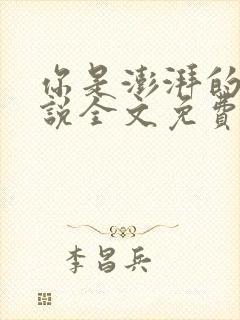 你是澎湃的
說全文免費
李昌兵